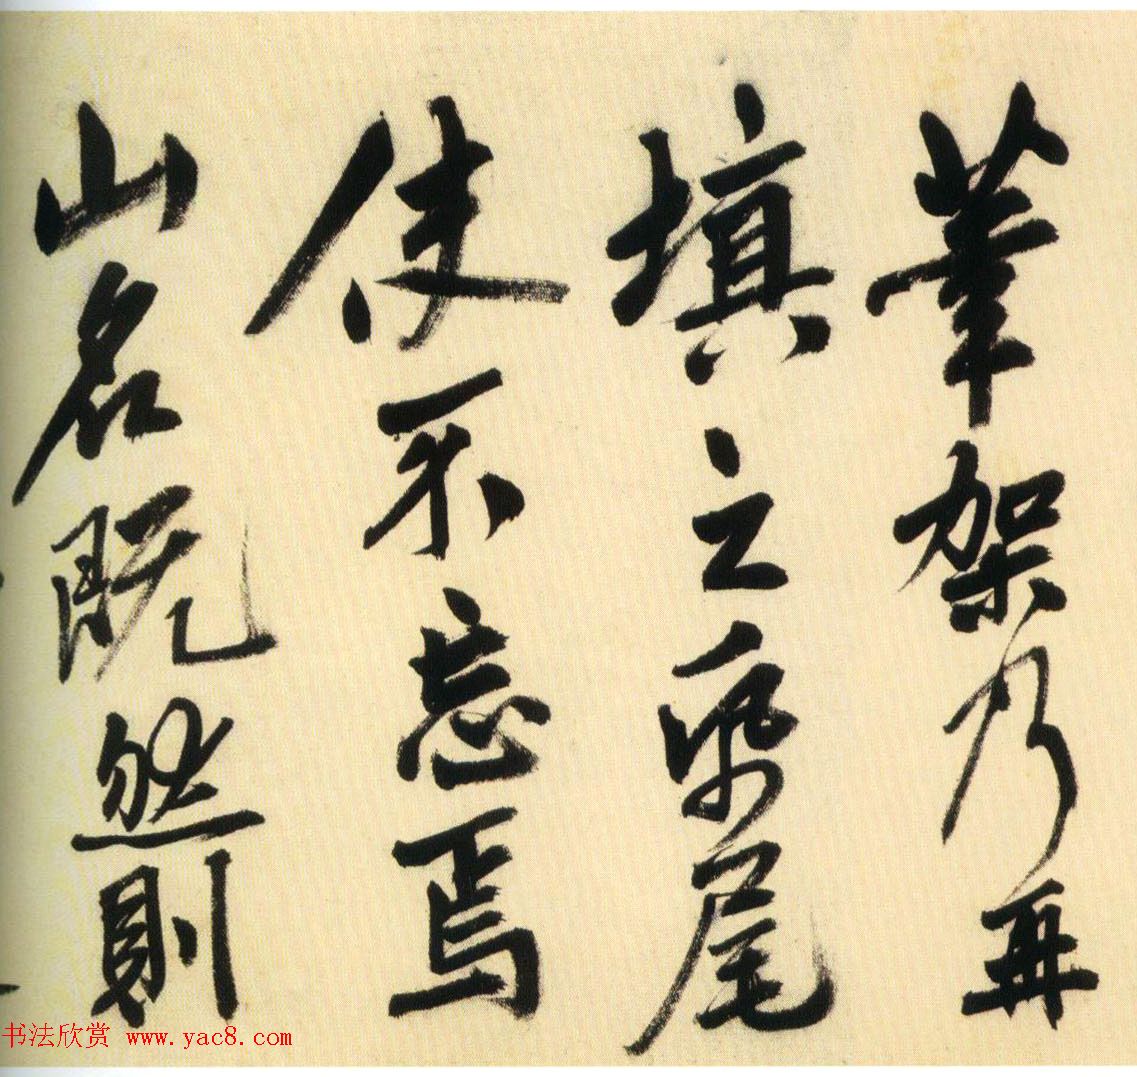 筆架乃再
填之帋尾
使不忘焉
山名既然則
书法欣赏 www.yac8.com